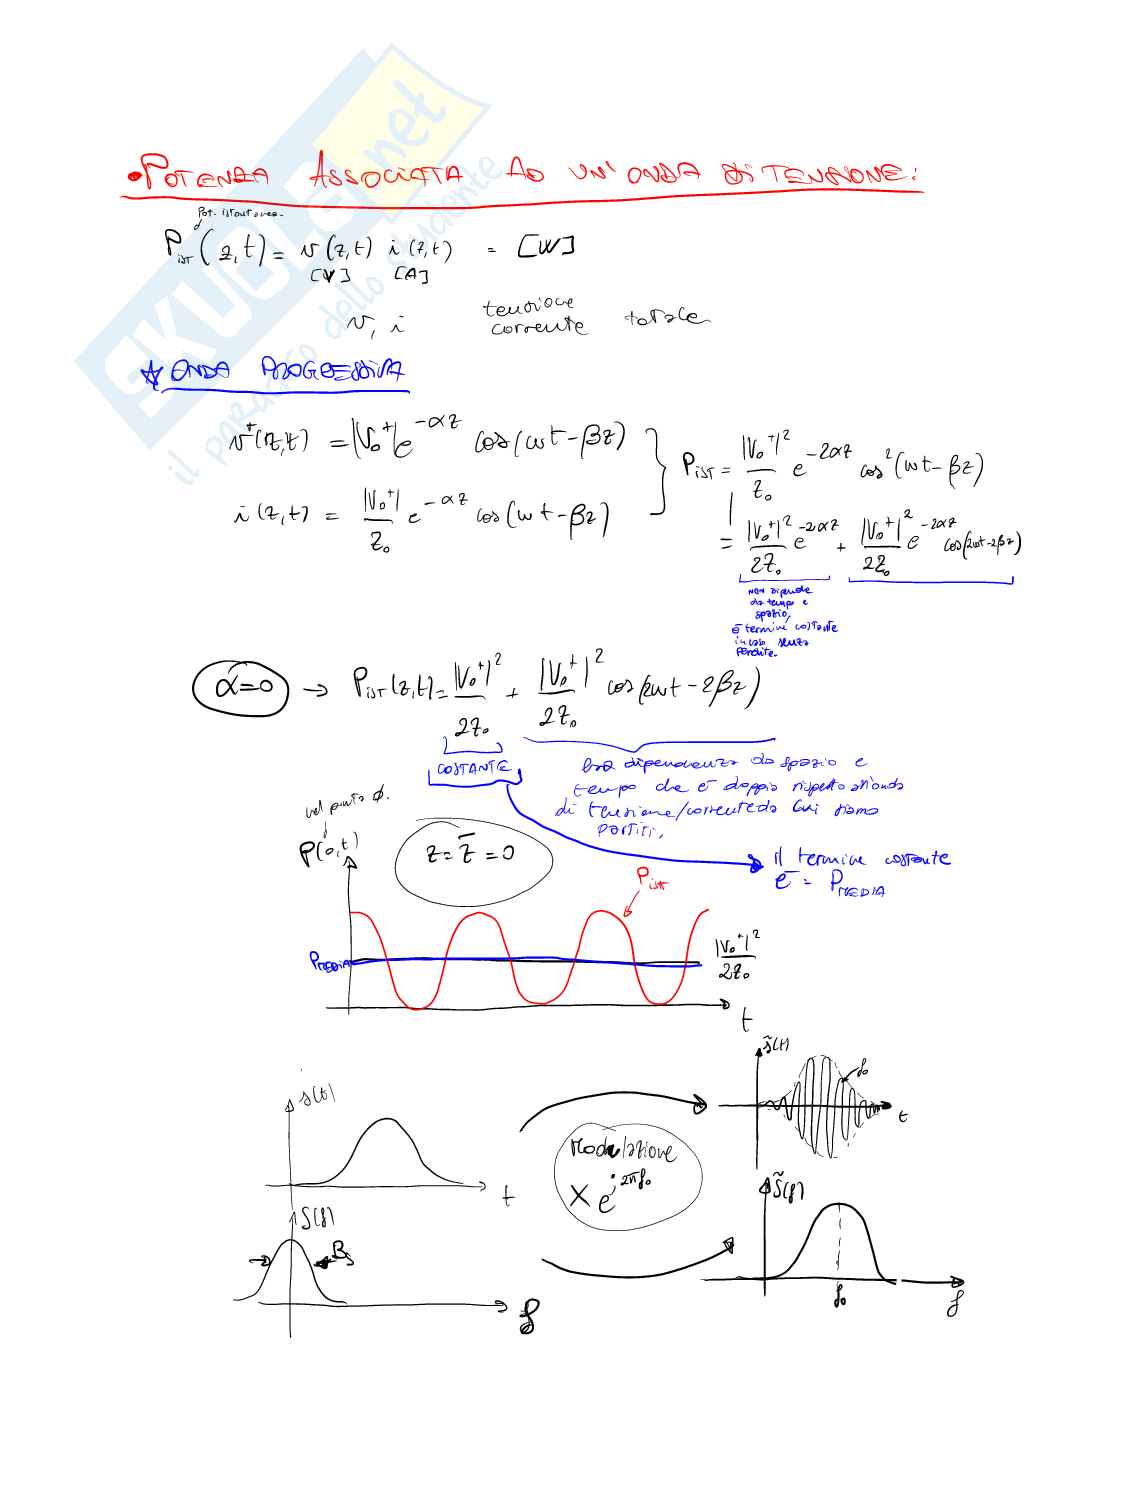 SKUOLA.net
il paradiso dello studente
• POTENZA ASSOCIATA AD UN'ONDA DI TENSIONE:
Pot. istantanea.
P_IST (z,t) = v(z,t) i(z,t) = [W]
[V] [A]
v, i tensione corrente totale
☆ ONDA PROGRESSIVA
v⁺(z,t) = |V₀⁺| e^{-αz} cos(ωt-βz)
i(z,t) = |V₀⁺|/Z₀ e^{-αz} cos(ωt-βz)
P_IST = |V₀⁺|²/Z₀ e^{-2αz} cos²(ωt-βz)
= |V₀⁺|²/2Z₀ e^{-2αz} + |V₀⁺|²/2Z₀ e^{-2αz} cos(2ωt-2βz)
NON dipende
da tempo e
spazio,
è termine costante
in caso senza
perdite.
α=0 → P_IST(z,t) = |V₀⁺|²/2Z₀ + |V₀⁺|²/2Z₀ cos(2ωt-2βz)
COSTANTE
dipendenza da spazio e
tempo che è doppia rispetto all'onda
di tensione/corrente da cui siamo
partiti,
il termine costante
è = P_MEDIA
nel punto ϕ.
P(0,t)
z = z̄ = 0
P_ist
P_MEDIA
|V₀⁺|²/2Z₀
t
s(t)
t
Modulazione
× e^{j2πf₀}
s̃(t)
f₀
t
S(f)
B_s
f
S̃(f)
f₀
f